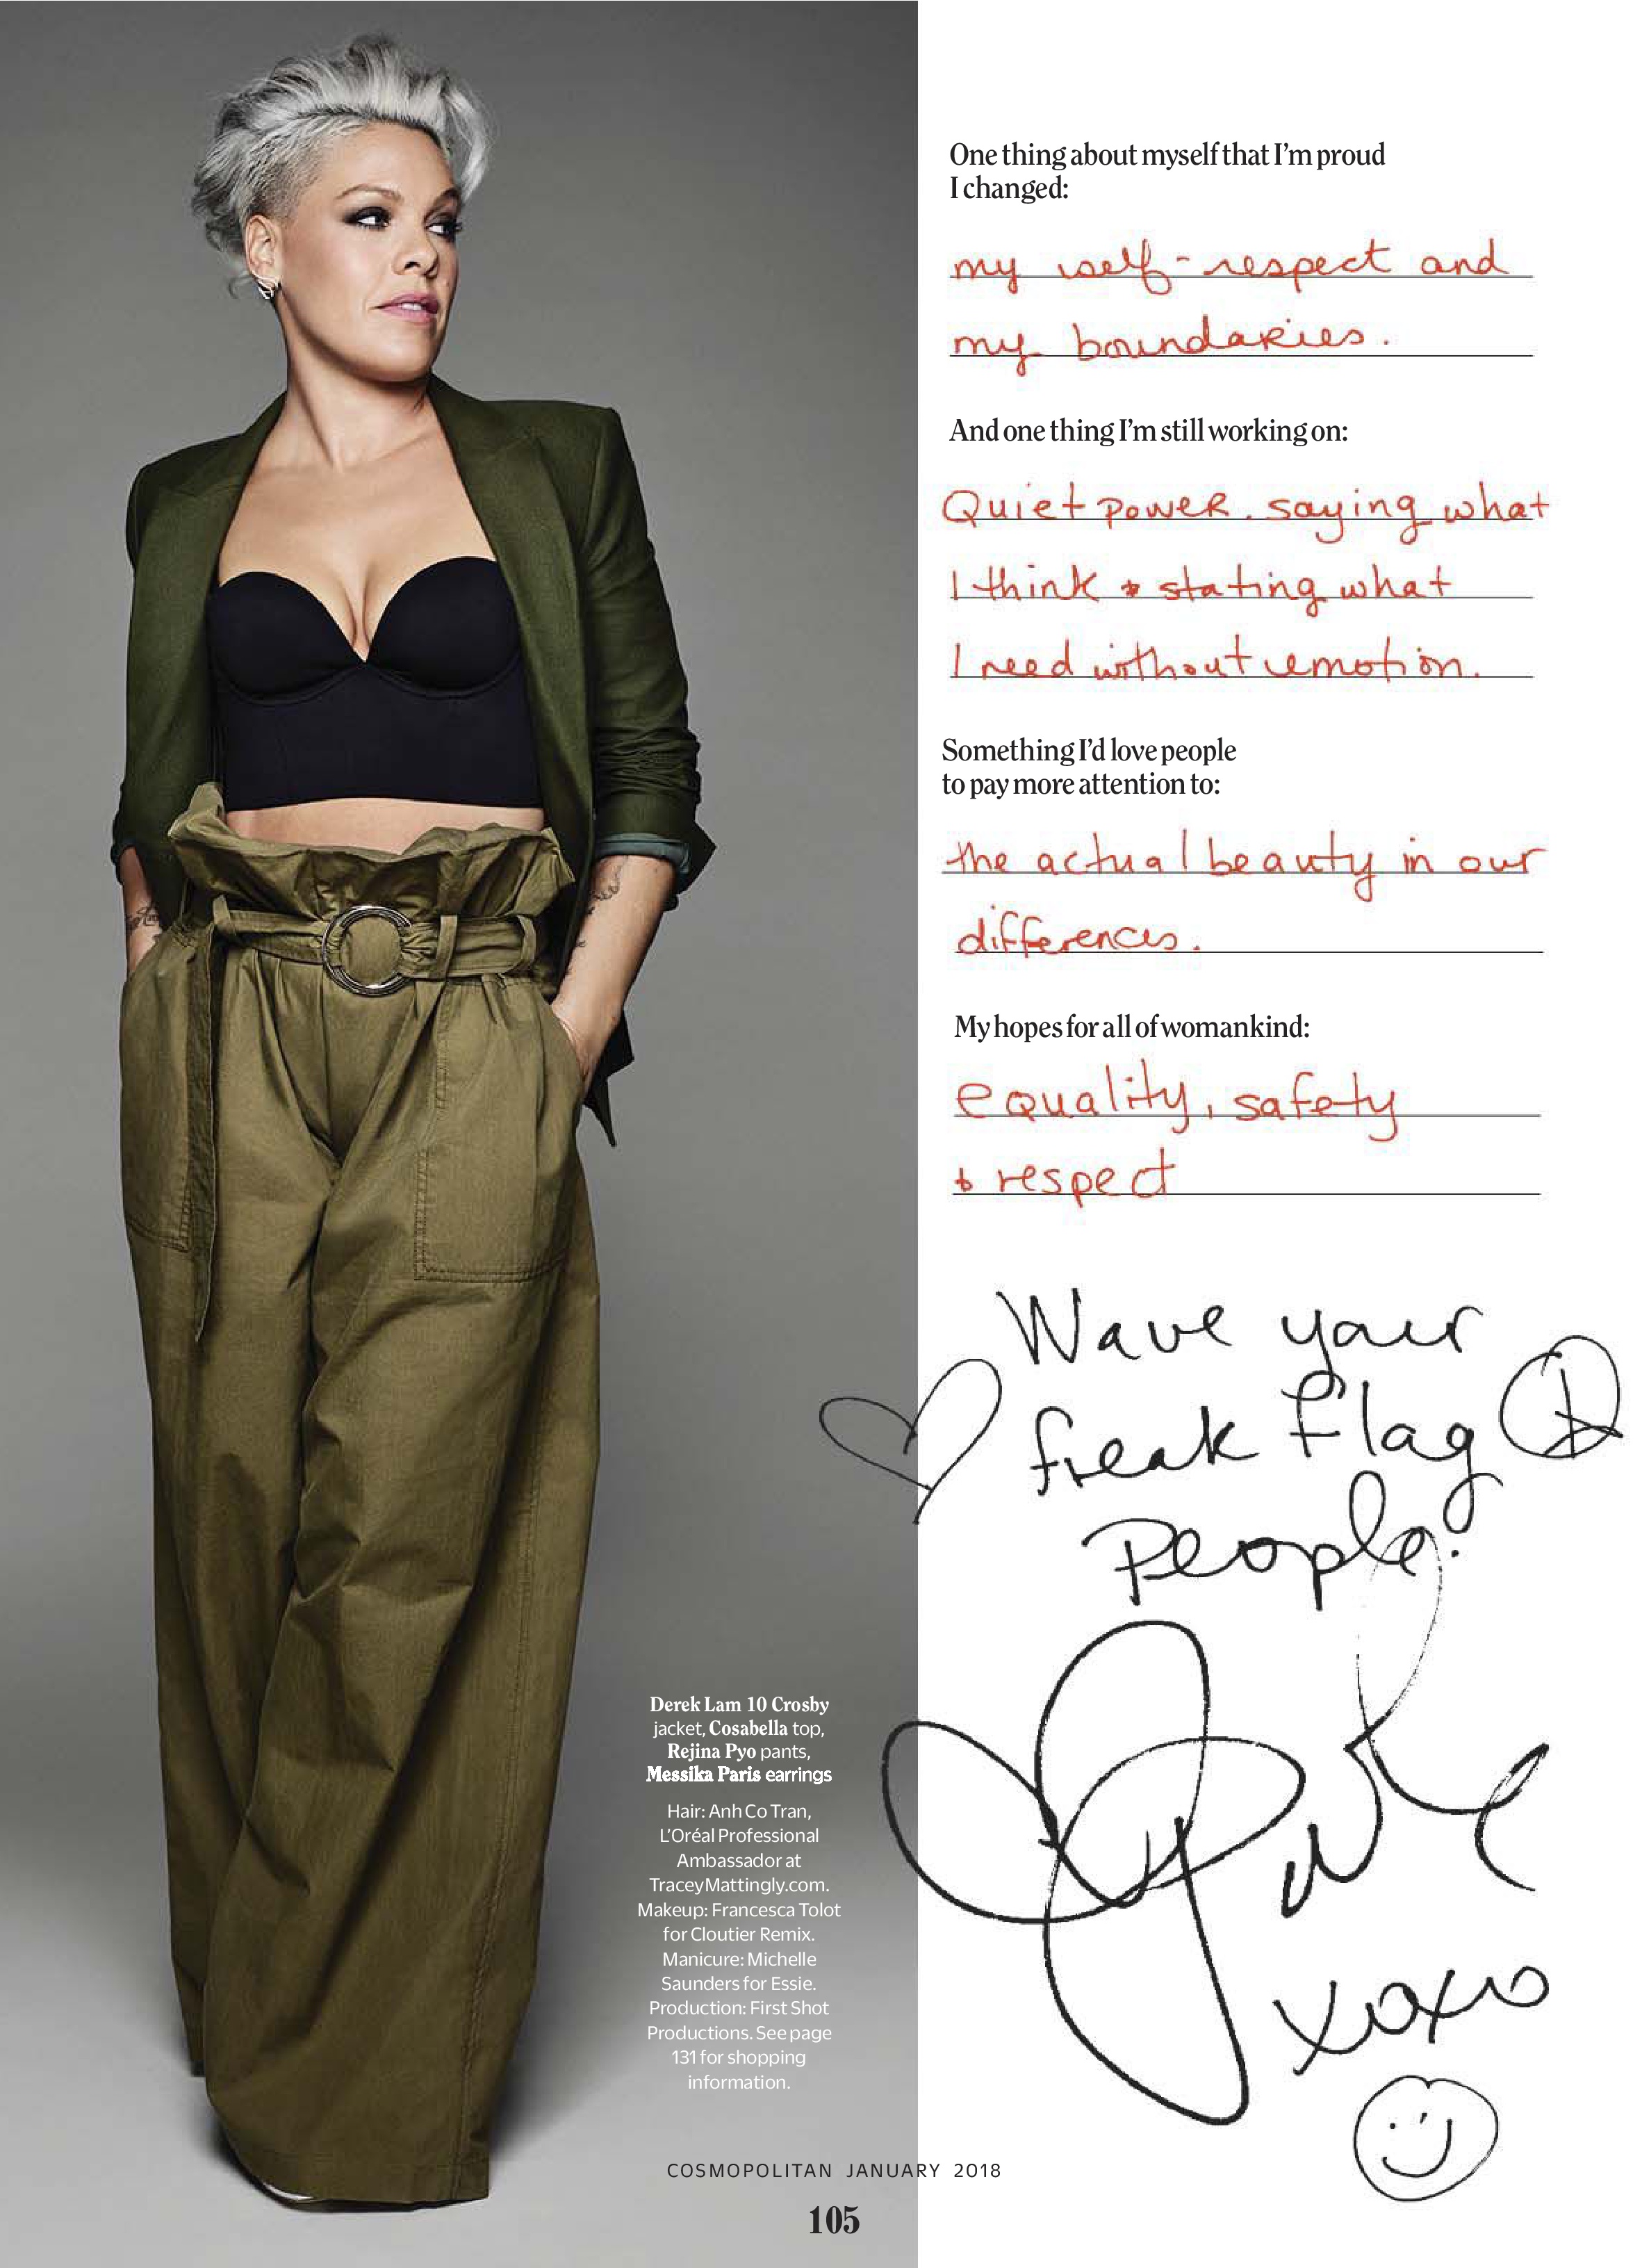 One thing about myself that I'm proud
I changed:
my self-respect and
my boundaries.
And one thing I'm still working on:
Quiet power. saying what
I think + stating what
I need without emotion.
Something I'd love people
to pay more attention to:
the actual beauty in our
differences.
My hopes for all of womankind:
equality, safety
+ respect
Wave your
freak flag
people!
P!nk
xoxo
Derek Lam 10 Crosby
jacket, Cosabella top,
Rejina Pyo pants,
Messika Paris earrings
Hair: Anh Co Tran,
L'Oréal Professional
Ambassador at
TraceyMattingly.com.
Makeup: Francesca Tolot
for Cloutier Remix.
Manicure: Michelle
Saunders for Essie.
Production: First Shot
Productions. See page
131 for shopping
information.
COSMOPOLITAN JANUARY 2018
105